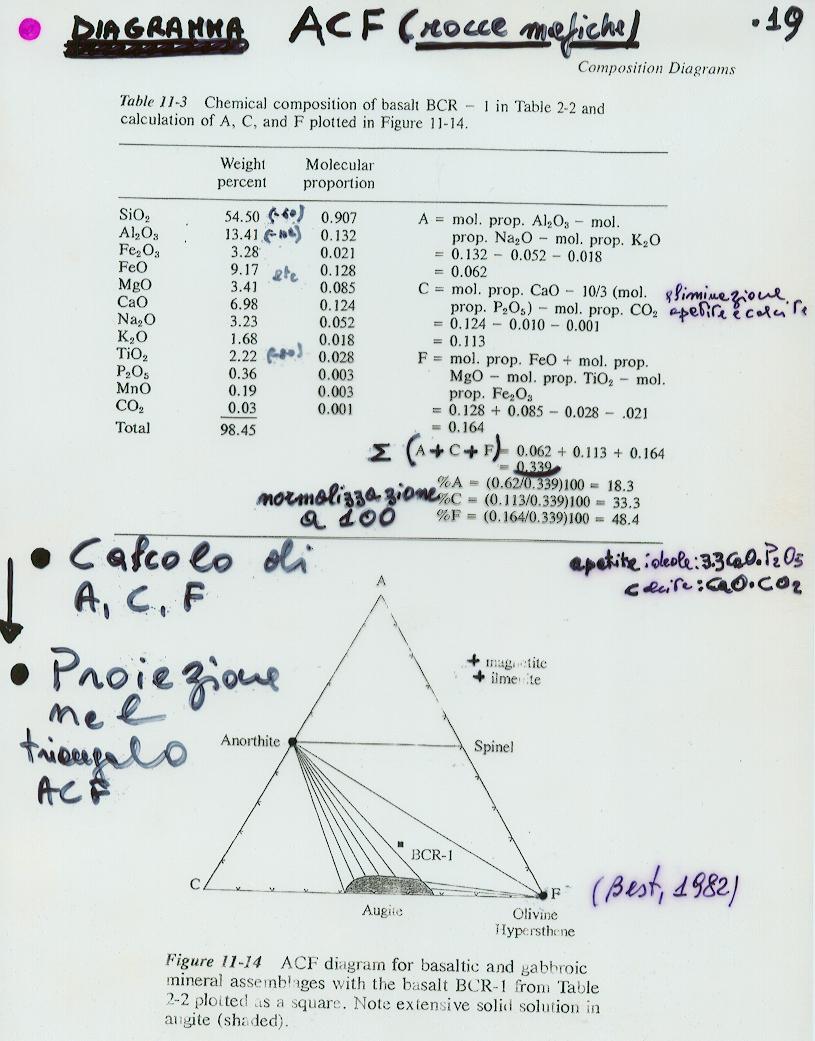 DIAGRAMMA ACF (rocce mafiche) .19
Composition Diagrams
Table 11-3 Chemical composition of basalt BCR – 1 in Table 2-2 and
calculation of A, C, and F plotted in Figure 11-14.
Weight Molecular
percent proportion
SiO₂ 54.50 (÷60) 0.907
Al₂O₃ 13.41 (÷102) 0.132
Fe₂O₃ 3.28 0.021
FeO 9.17 etc 0.128
MgO 3.41 0.085
CaO 6.98 0.124
Na₂O 3.23 0.052
K₂O 1.68 0.018
TiO₂ 2.22 (÷80) 0.028
P₂O₅ 0.36 0.003
MnO 0.19 0.003
CO₂ 0.03 0.001
Total 98.45
A = mol. prop. Al₂O₃ – mol.
prop. Na₂O – mol. prop. K₂O
= 0.132 – 0.052 – 0.018
= 0.062
C = mol. prop. CaO – 10/3 (mol.
prop. P₂O₅) – mol. prop. CO₂
= 0.124 – 0.010 – 0.001
= 0.113
eliminazione
apatite e calcite
F = mol. prop. FeO + mol. prop.
MgO – mol. prop. TiO₂ – mol.
prop. Fe₂O₃
= 0.128 + 0.085 – 0.028 – .021
= 0.164
Σ (A + C + F) = 0.062 + 0.113 + 0.164
= 0.339
%A = (0.62/0.339)100 = 18.3
normalizzazione %C = (0.113/0.339)100 = 33.3
a 100 %F = (0.164/0.339)100 = 48.4
• Calcolo di
A, C, F
apatite ideale: 3.3CaO.P₂O₅
calcite: CaO.CO₂
• Proiezione
nel
triangolo
ACF
A
+ magnetite
+ ilmenite
Anorthite Spinel
BCR-1
C F
Augite Olivine
Hypersthene
(Best, 1982)
Figure 11-14 ACF diagram for basaltic and gabbroic
mineral assemblages with the basalt BCR-1 from Table
2-2 plotted as a square. Note extensive solid solution in
augite (shaded).